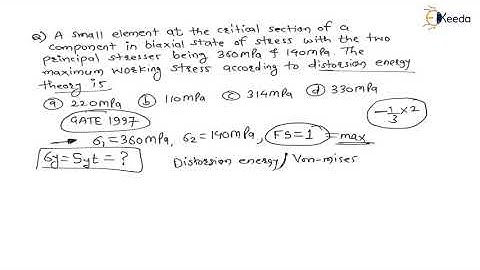 Q) A small element at the critical section of a
component in biaxial state of stress with the two
principal stresses being 360MPa & 140MPa. The
maximum working stress according to distorsion energy
theory is
(a) 220MPa (b) 110MPa (c) 314MPa (d) 330MPa
GATE 1997
-1/3 x 2
→ σ1=360MPa, σ2=140MPa, FS=1 = max
σy=Syt=?
Distorsion energy/Von-mises
Ekeeda